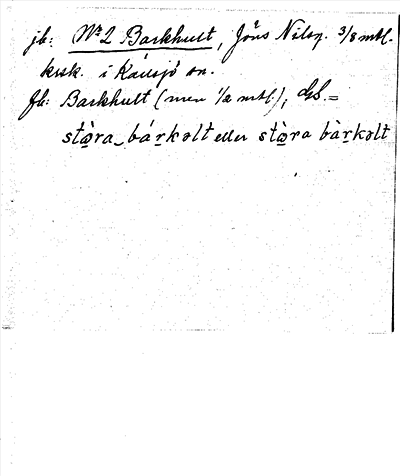 jb: Nr 2 Barkhult, Jöns Nilsq. 3/8 mtl.
krsk. i Kårsjö sn.
Jb: Barkhult (men 1/2 mtl.), ds. =
stò̤ra bárkəlt eller stò̤ra bàrkəlt